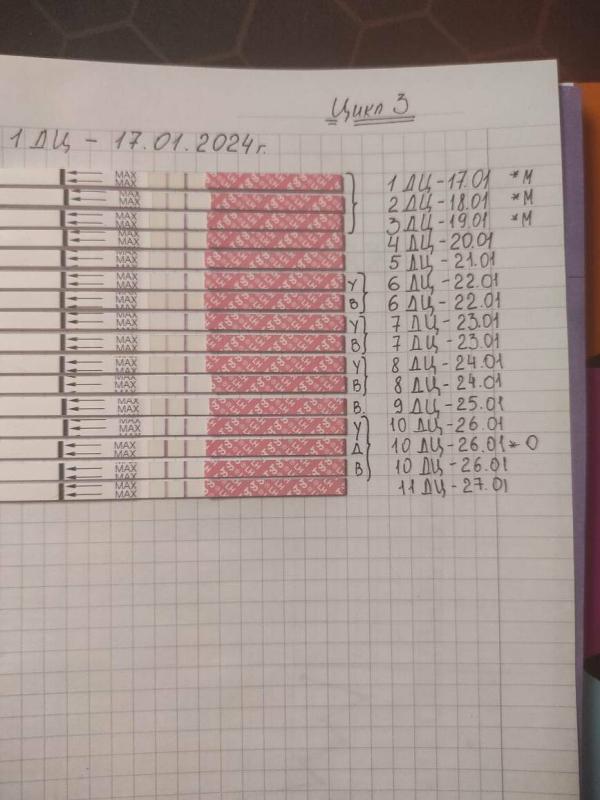 Цикл 3
1 ДЦ - 17.01.2024г.
MAX 1 ДЦ - 17.01 *М
MAX
MAX 2 ДЦ - 18.01 *М
MAX
MAX 3 ДЦ - 19.01 *М
MAX
MAX 4 ДЦ - 20.01
MAX 5 ДЦ - 21.01
MAX У 6 ДЦ - 22.01
MAX
MAX В 6 ДЦ - 22.01
MAX
MAX У 7 ДЦ - 23.01
MAX В 7 ДЦ - 23.01
MAX У 8 ДЦ - 24.01
MAX
MAX В 8 ДЦ - 24.01
MAX В. 9 ДЦ - 25.01
MAX
MAX У 10 ДЦ - 26.01
MAX
MAX Д 10 ДЦ - 26.01 * О
MAX В 10 ДЦ - 26.01
MAX
MAX 11 ДЦ - 27.01
MAX